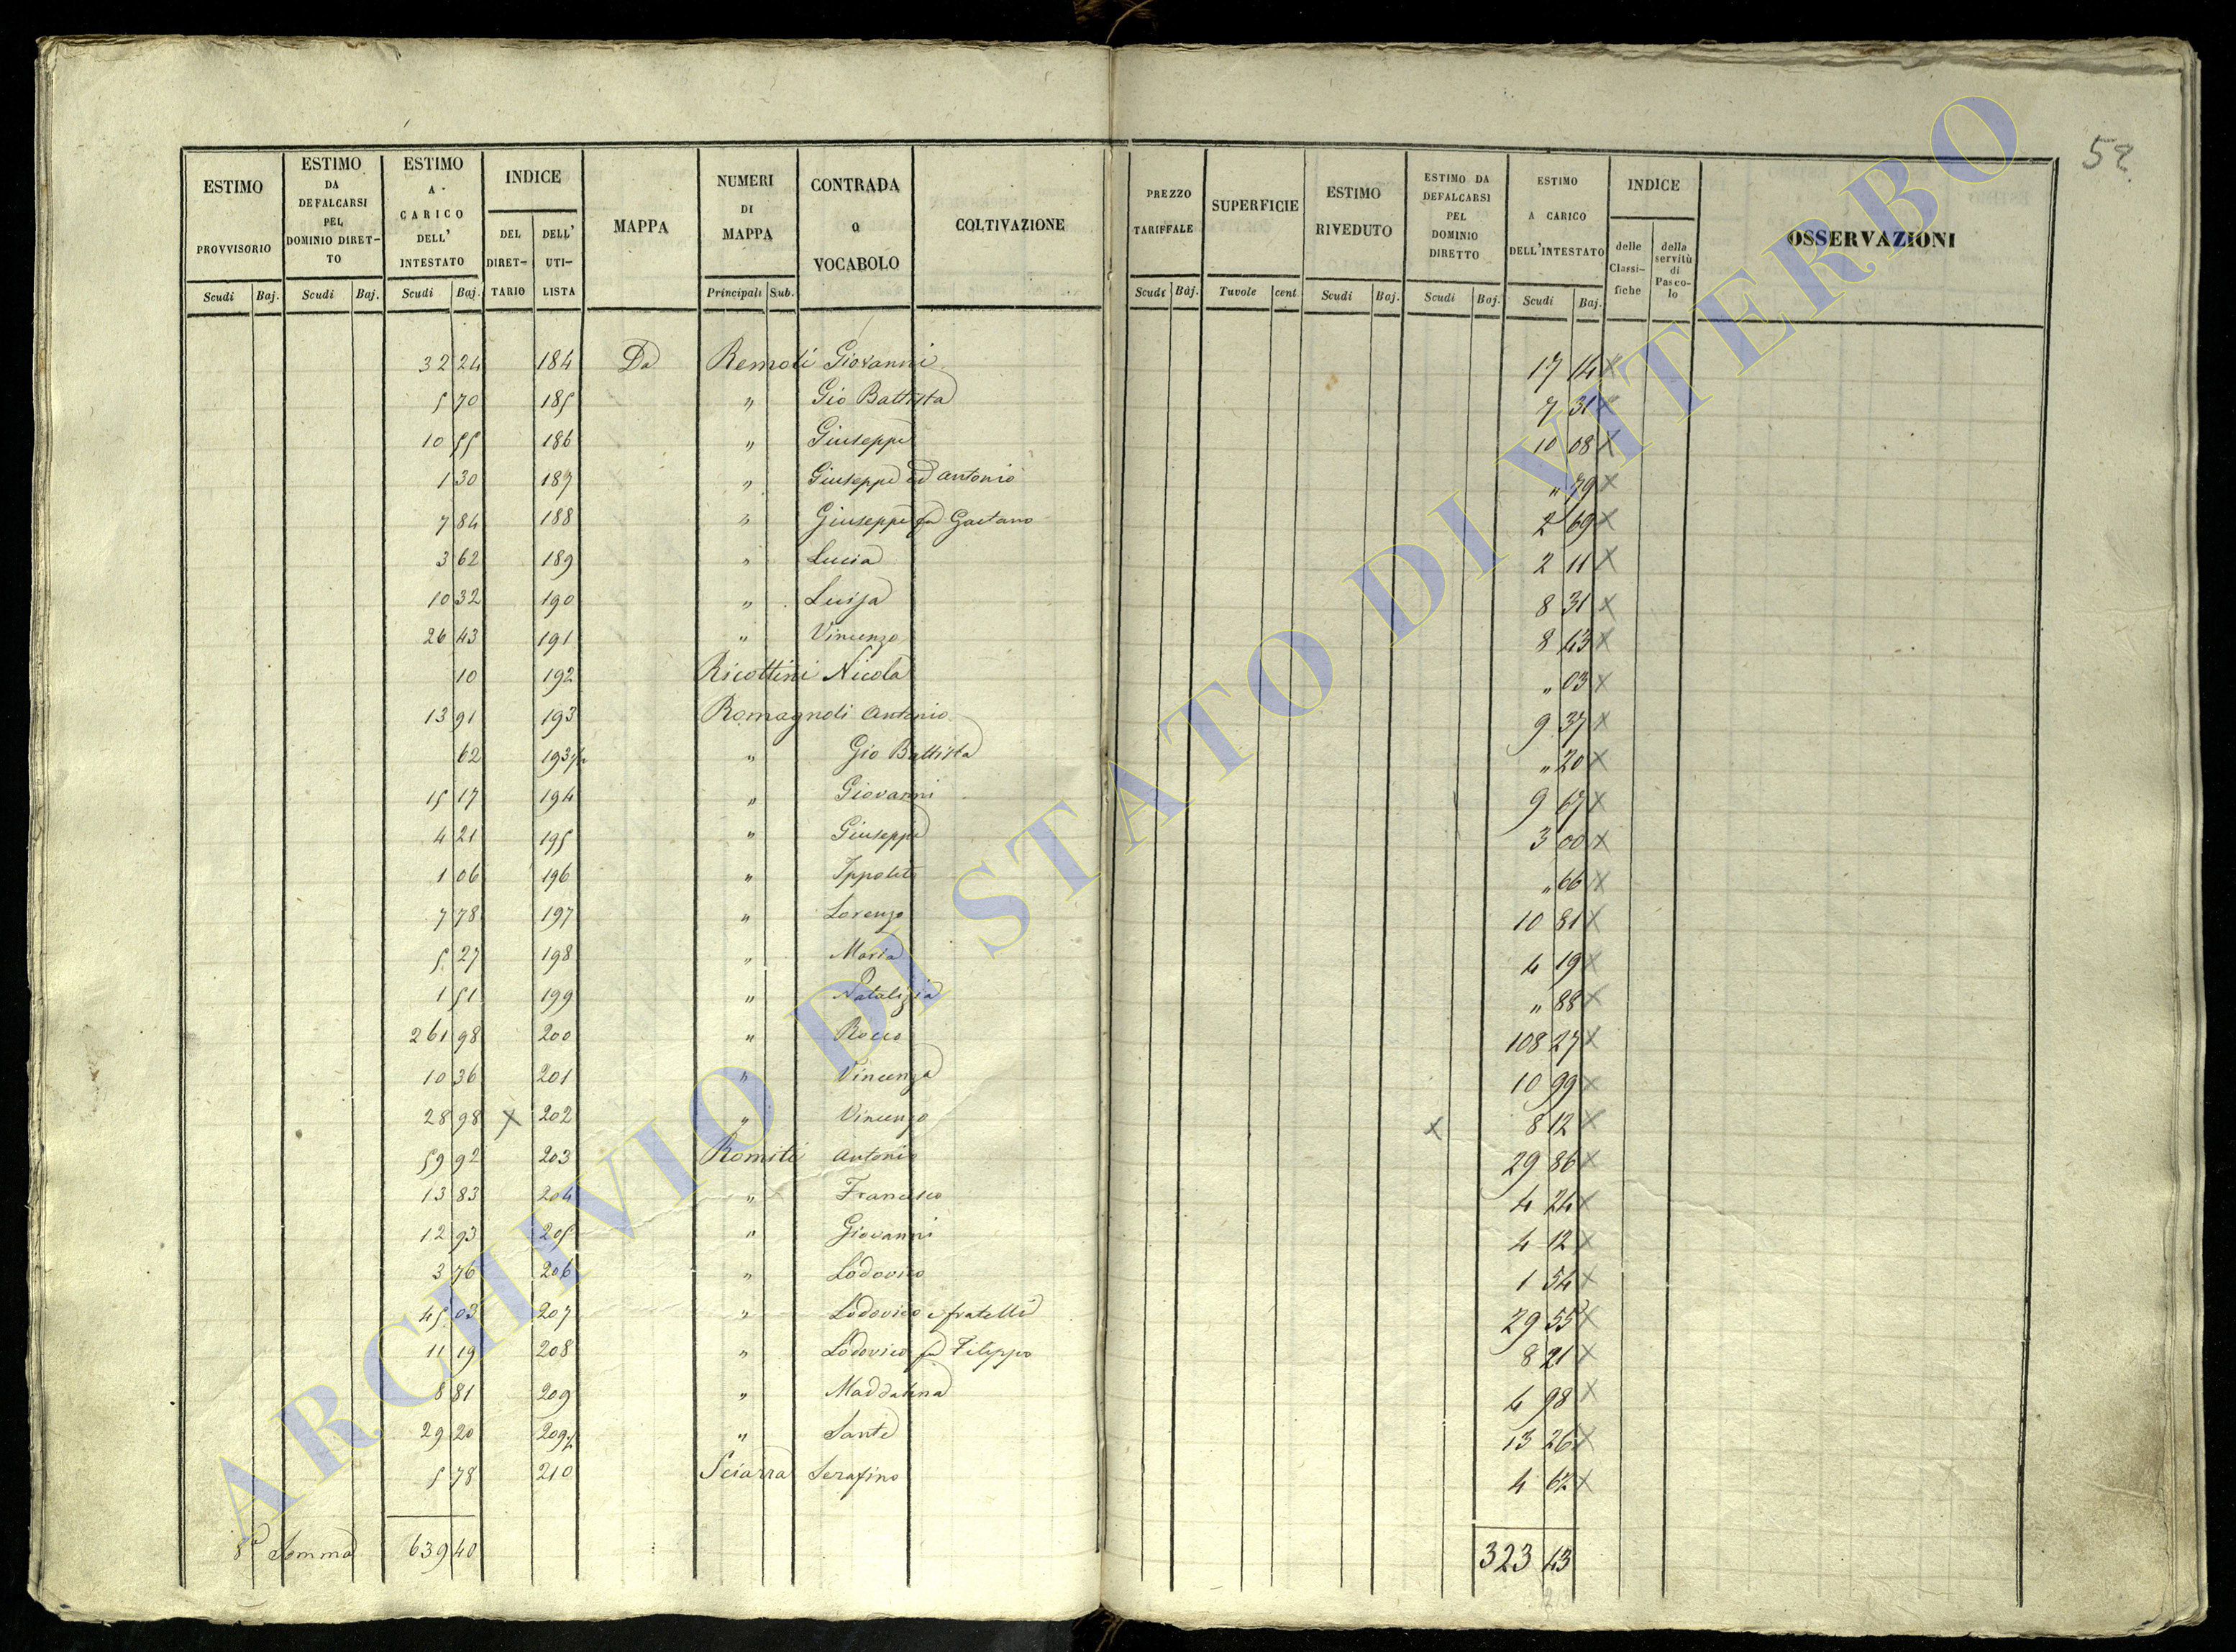 52
ESTIMO PROVVISORIO
ESTIMO DA DEFALCARSI PEL DOMINIO DIRETTO
ESTIMO A CARICO DELL' INTESTATO
INDICE
DEL DIRETTARIO
DELL' UTILISTA
MAPPA
NUMERI DI MAPPA
CONTRADA O VOCABOLO
COLTIVAZIONE
PREZZO TARIFFALE
SUPERFICIE
ESTIMO RIVEDUTO
ESTIMO DA DEFALCARSI PEL DOMINIO DIRETTO
ESTIMO A CARICO DELL'INTESTATO
INDICE
delle Classifiche
della servitù di Pascolo
OSSERVAZIONI
Scudi Baj. Scudi Baj. Scudi Baj. Principali Sub. Scudi Baj. Tavole cent. Scudi Baj. Scudi Baj. Scudi Baj.
32 24 184 Da Remoli Giovanni 17 14 x
5 70 185 " Gio Battista 7 31 x
10 55 186 " Giuseppe 10 08 x
1 30 187 " Giuseppe ed Antonio " 79 x
7 84 188 " Giuseppe fu Gaetano 2 69 x
3 62 189 " Lucia 2 11 x
10 32 190 " Luisa 8 31 x
26 43 191 " Vincenzo 8 43 x
10 192 Ricottini Nicola " 03 x
13 91 193 Romagnoli Antonio 9 37 x
62 193 1/2 " Gio Battista " 20 x
15 17 194 " Giovanni 9 67 x
4 21 195 " Giuseppe 3 00 x
1 06 196 " Ippolito " 66 x
7 78 197 " Lorenzo 10 81 x
5 27 198 " Maria 4 19 x
1 51 199 " Natalizia " 88 x
261 98 200 " Rocco 108 27 x
10 36 201 " Vincenza 10 99 x
28 98 x 202 " Vincenzo x 8 12 x
59 92 203 Romiti Antonio 29 86 x
13 83 204 " Francesco 4 24 x
12 93 205 " Giovanni 4 12 x
3 76 206 " Lodovico 1 54 x
45 03 207 " Lodovico e fratelli 29 55 x
11 19 208 " Lodovico fu Filippo 8 21 x
8 81 209 " Maddalena 4 98 x
29 20 209 1/2 " Sante 13 26 x
5 78 210 Sciarra Serafino 4 62 x
8a Somma 639 40 323 43
ARCHIVIO DI STATO DI VITERBO